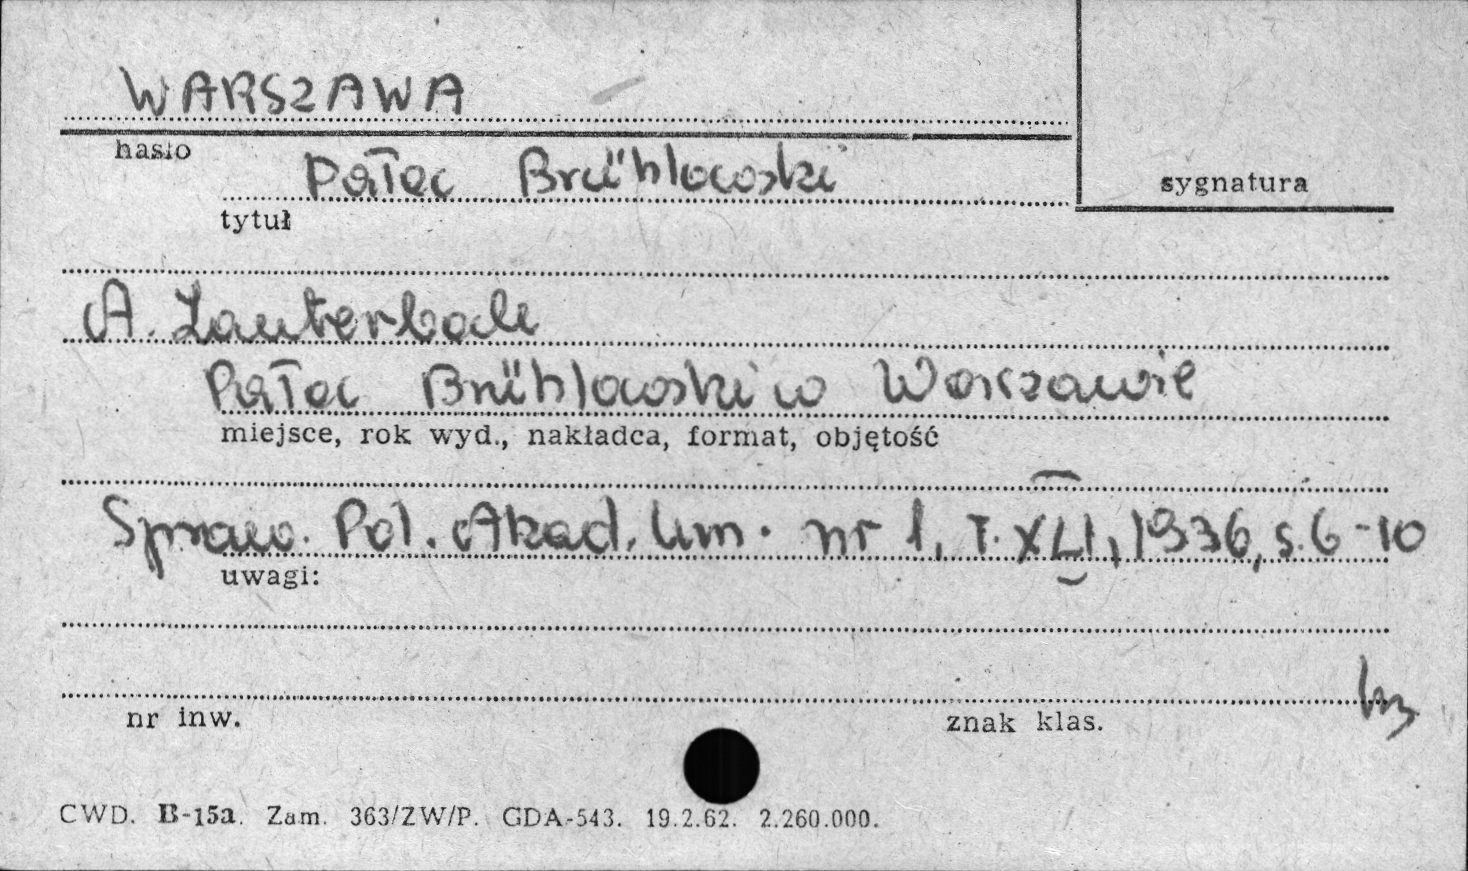 WARSZAWA
hasło
Pałac Brühlowski
sygnatura
tytuł
A. Lauterbach
Pałac Brühlowski w Warszawie
miejsce, rok wyd., nakładca, format, objętość
Spraw. Pol. Akad. Um. nr 1, T. XLI, 1936, s. 6-10
uwagi:
nr inw.
znak klas.
CWD. B-15a. Zam. 363/ZW/P. GDA-543. 19.2.62. 2.260.000.